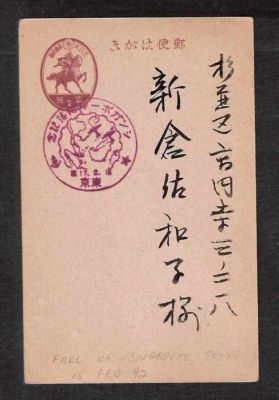 郵便はがき
シンガポール陥落記念
17.2.16
東京
杉並区高円寺三ノ二八
新倉佐和子様
FALL OF SINGAPORE, TOKYO
15 FEB 42